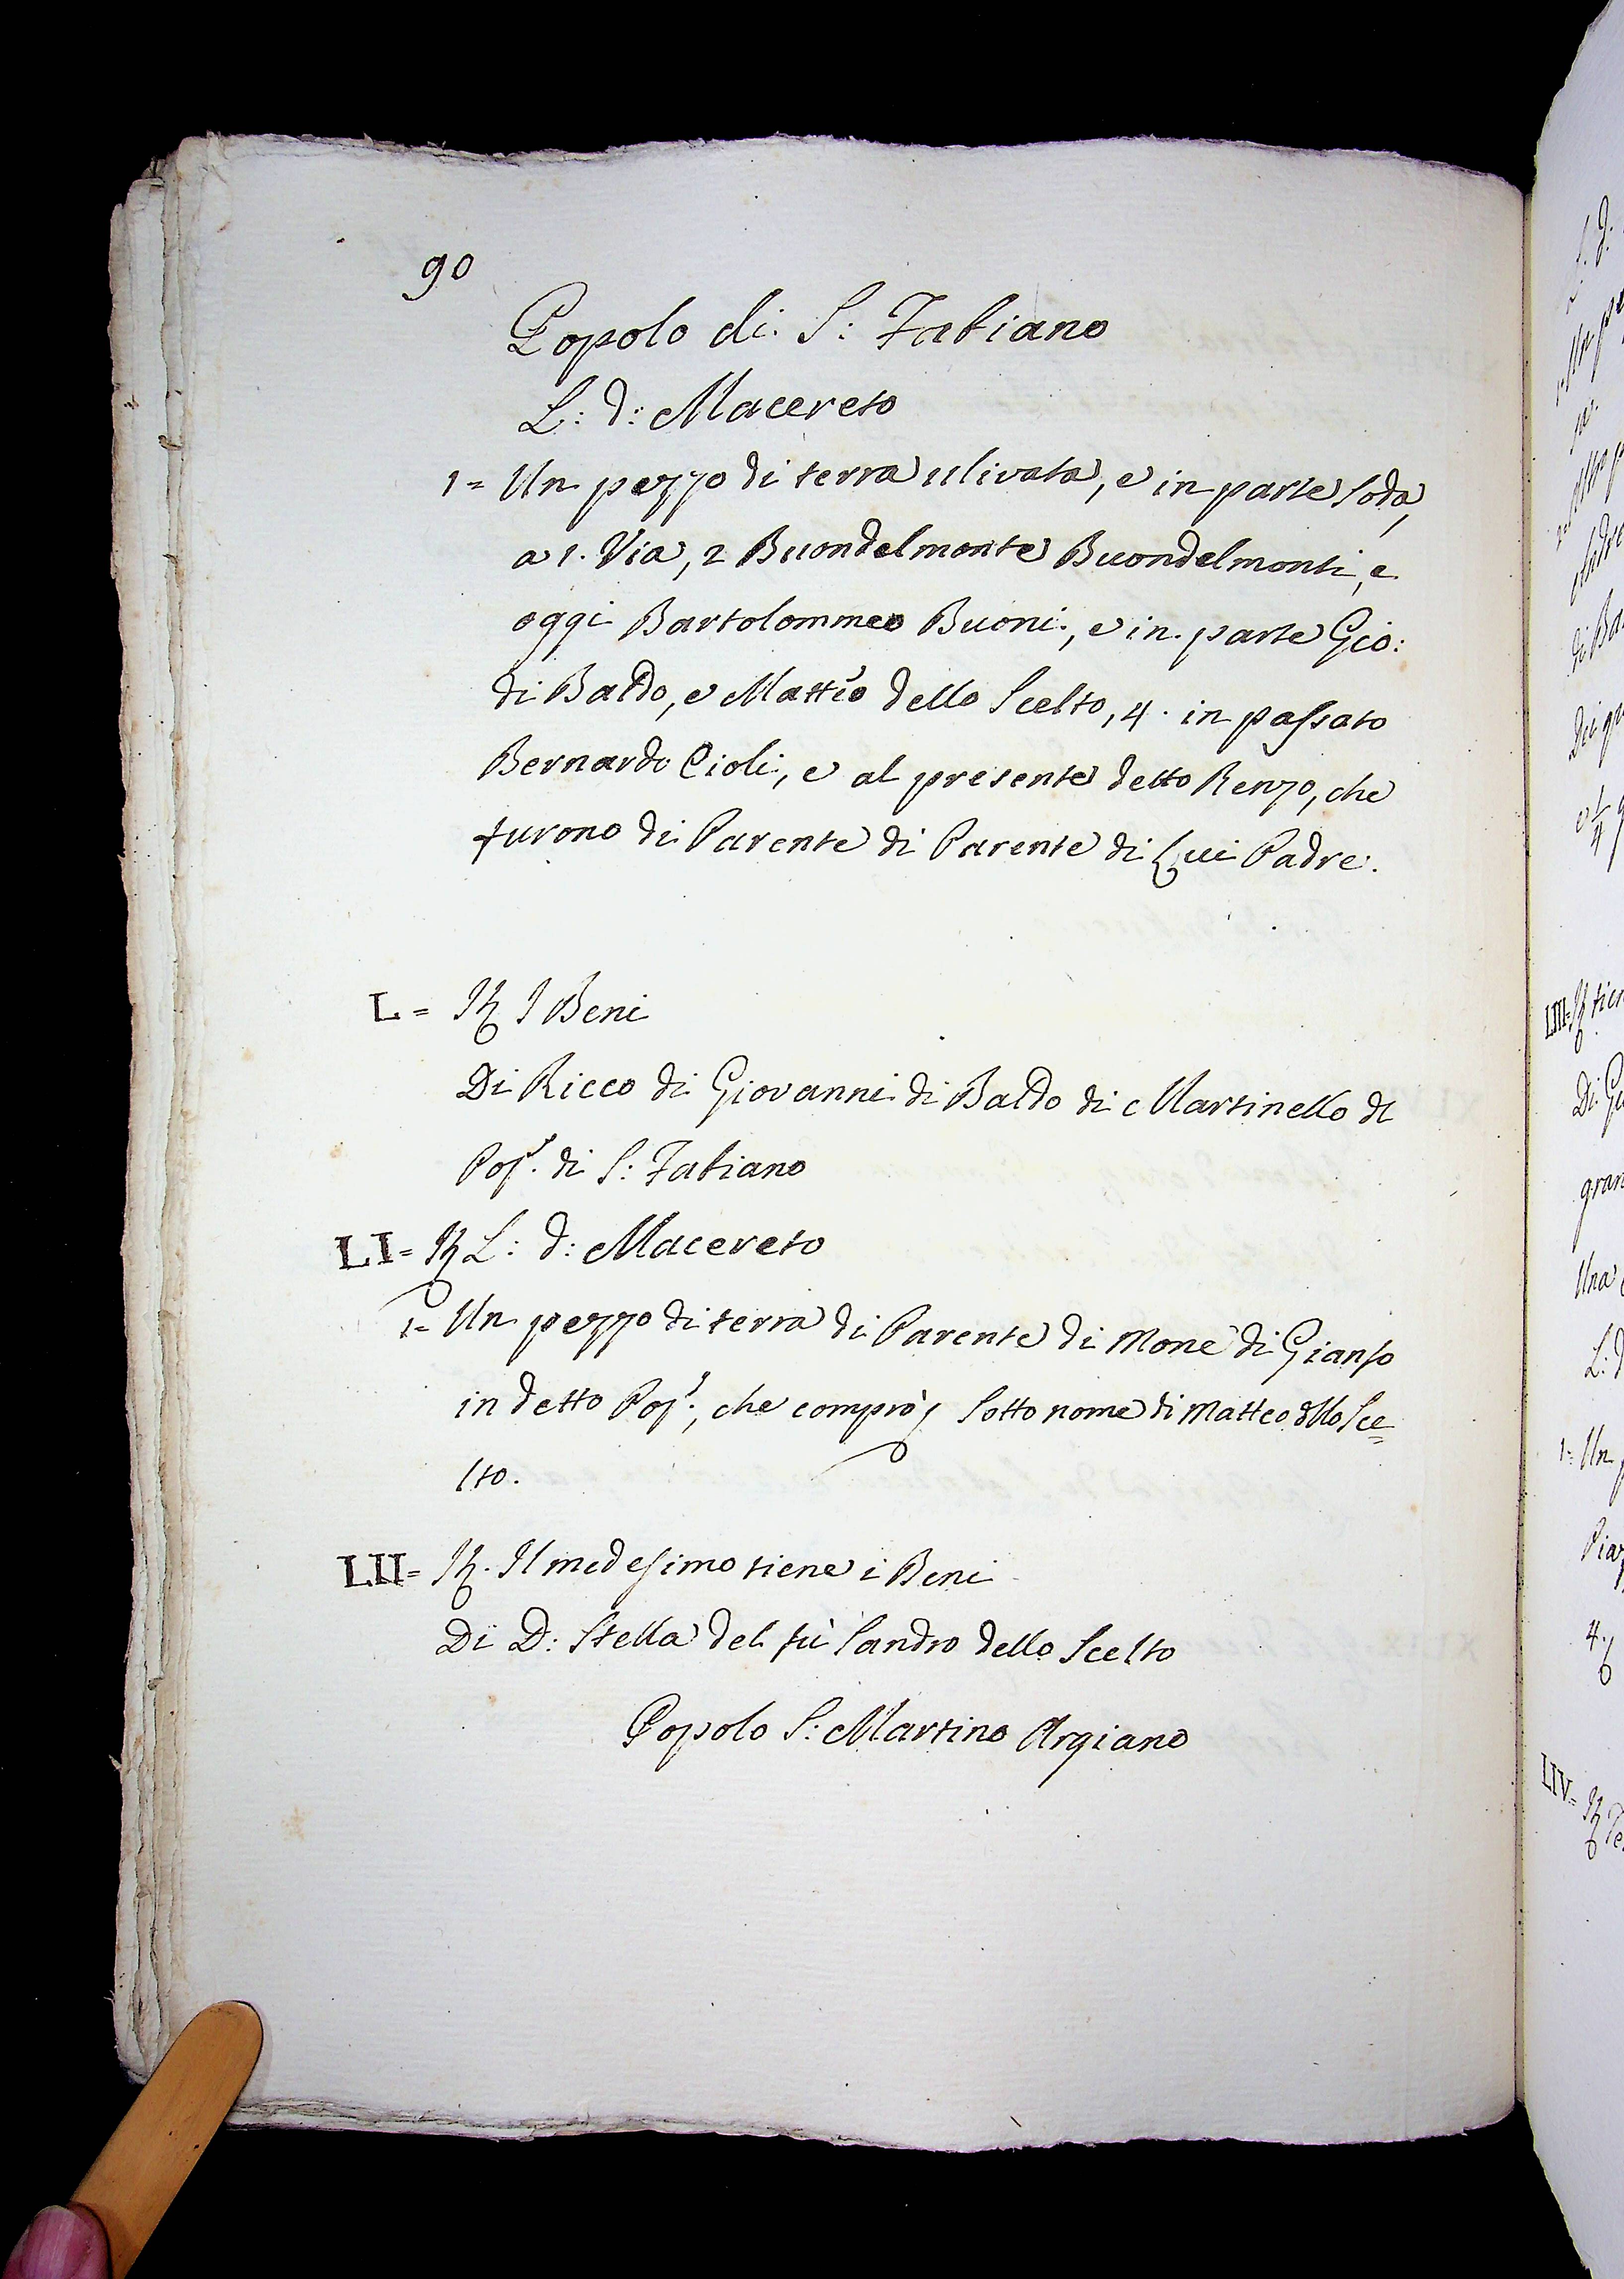 90
Popolo di S: Fabiano
L: d: Macereto
1= Un pezzo di terra ulivata, e in parte soda,
a 1. Via, 2 Buondelmonte Buondelmonti, e
oggi Bartolommeo Buoni, e in parte Gio:
di Baldo, e Matteo dello Scelto, 4. in passato
Bernardo Cioli, e al presente detto Renzo, che
furono di Parente di Parente di Lui Padre.
L= It I Beni
Di Ricco di Giovanni di Baldo di Martinello di
di S: Fabiano
LI= It L: d: Macereto
1= Un pezzo di terra di Parente di Mone di Gianso
in detto che comprò sotto nome di Matteo dello Sce=
lto.
LII= It. Il medesimo tiene i Beni
Di D: Stella del fù Sandro dello Scelto
Popolo S: Martino Argiano
LIII=
Di
gran
Una
1= Un
4.
LIV=